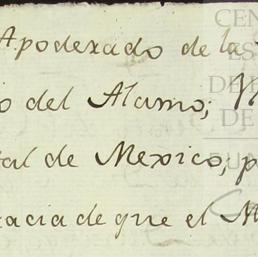 Apoderado de la
o del Alamo;
tal de Mexico; p
racia de que el M
CEN
ES
DE
DE
FUN